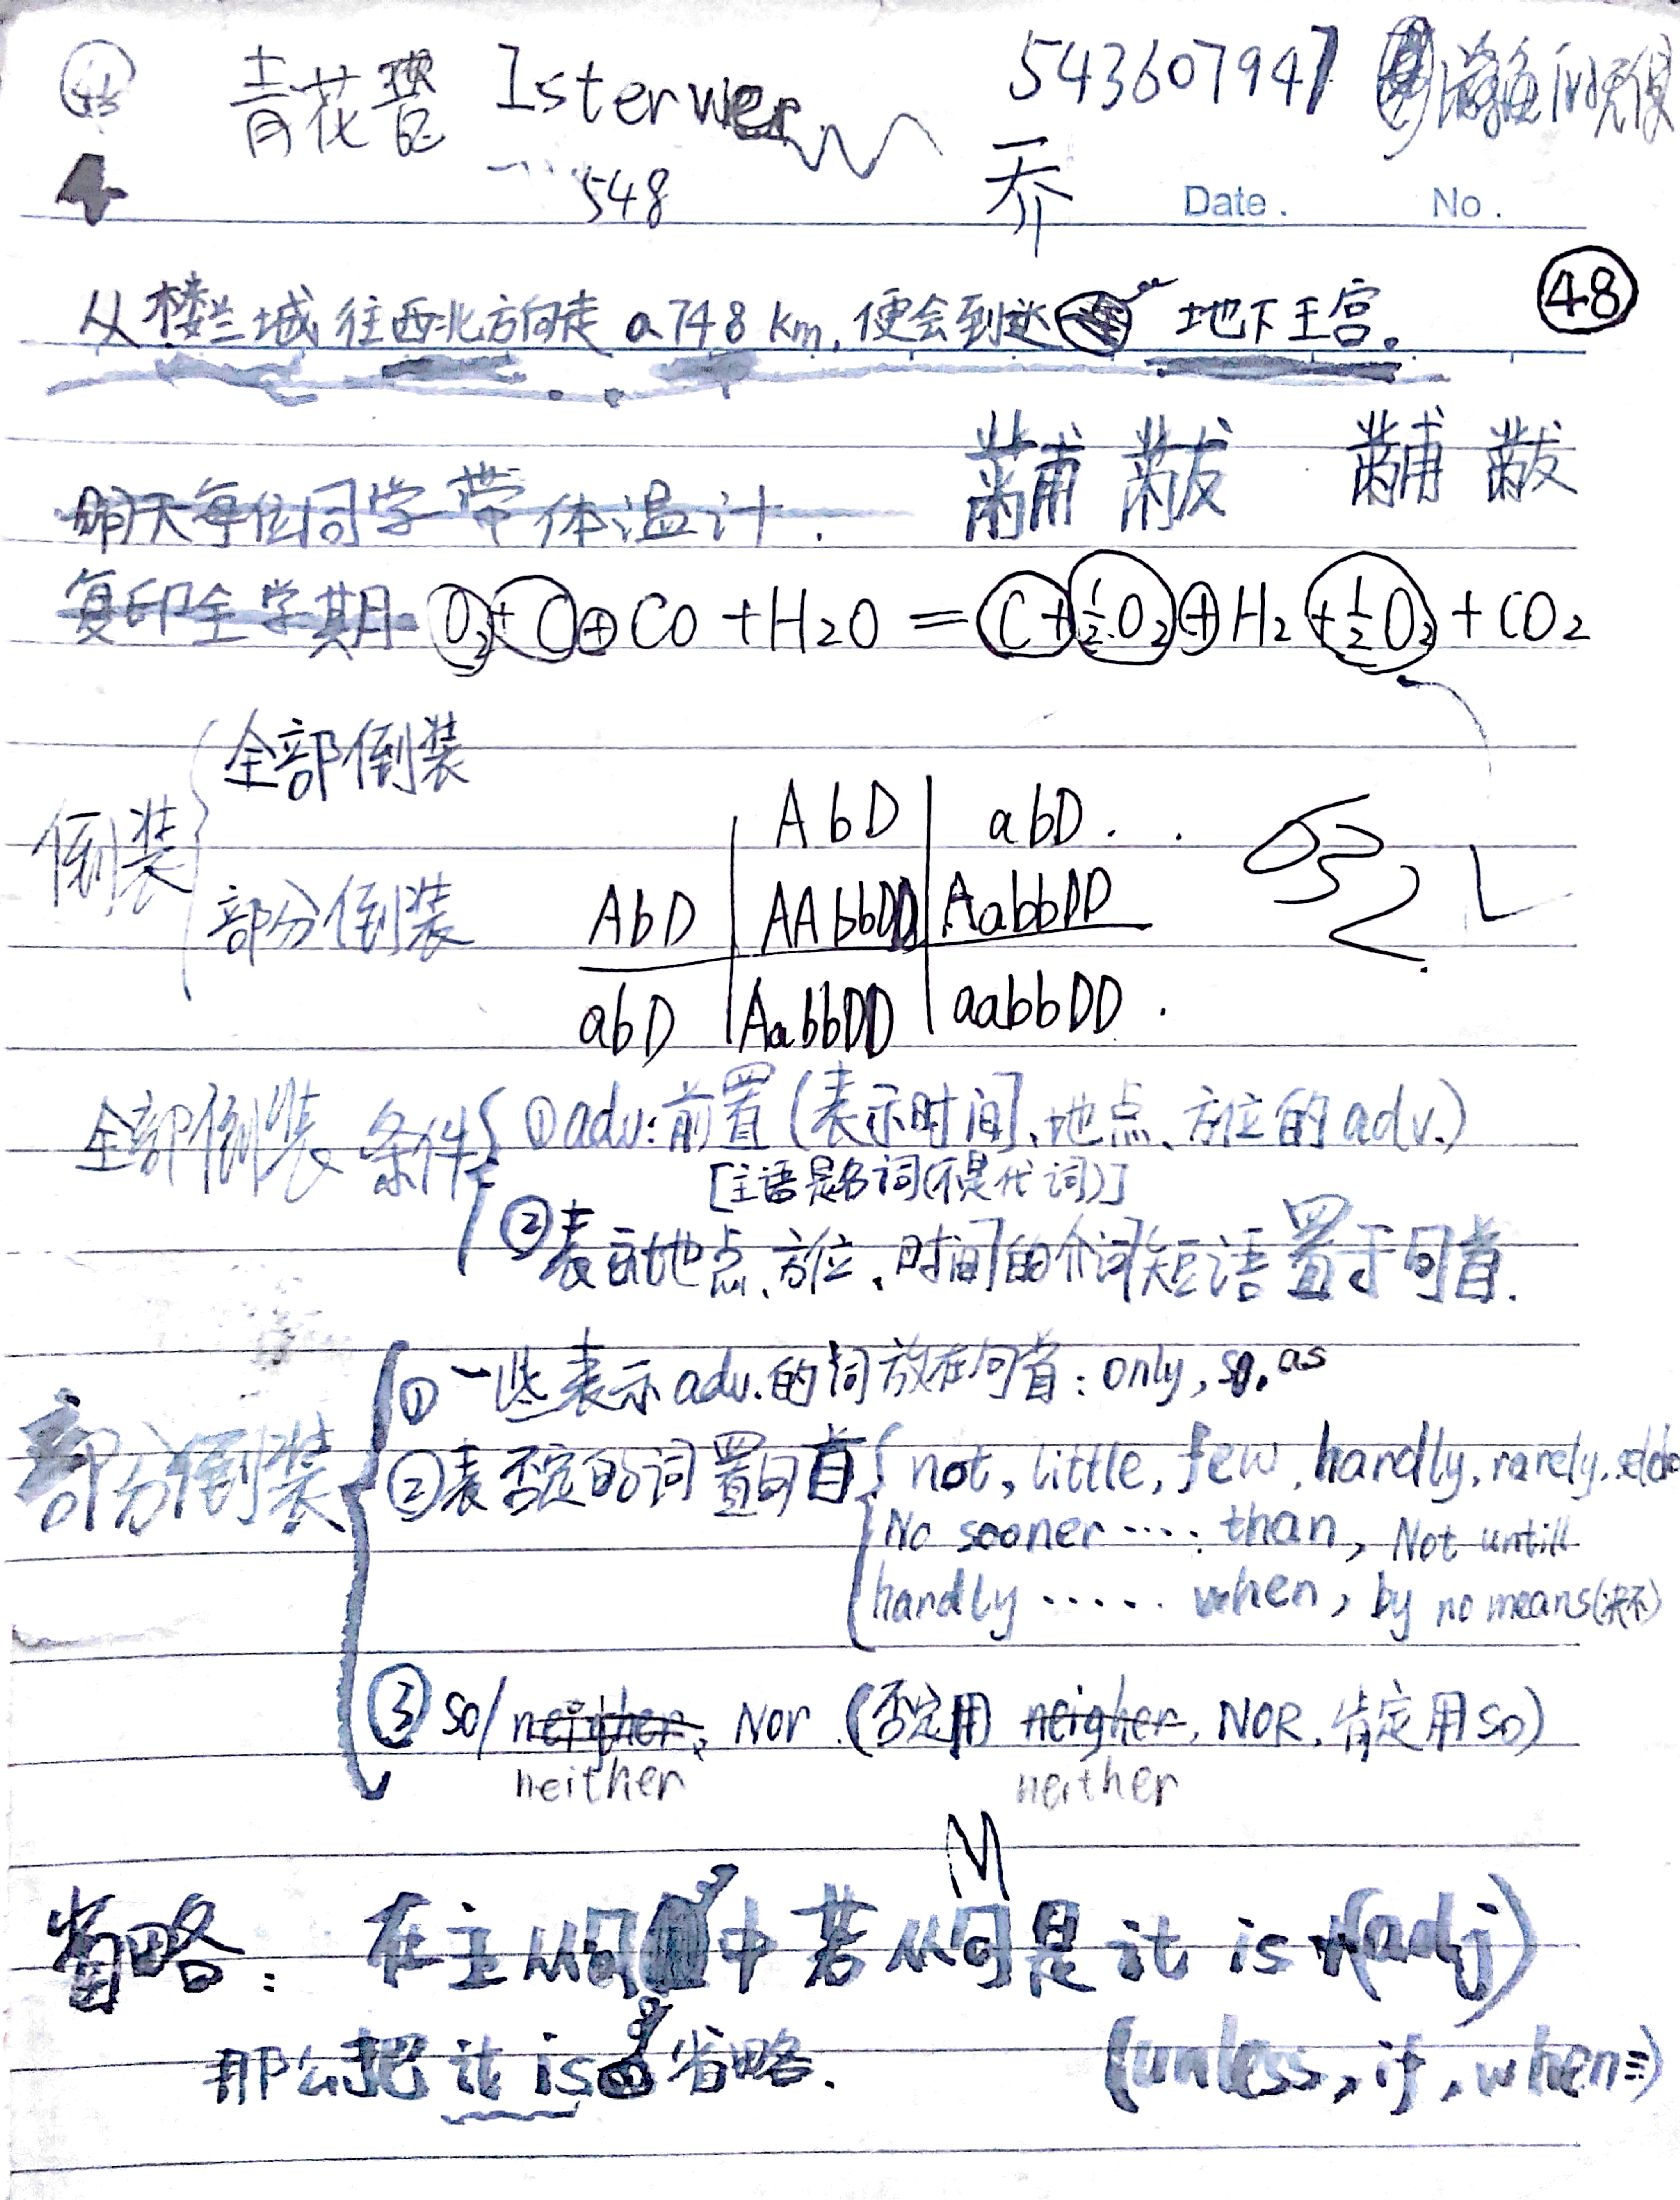 青花瓷 Isterwer 543607947
4 548 乔 Date. No.
48
从楼兰城往西北方向走 a748 km,便会到达 地下王宫。
黼黻 黼黻
明天每位同学带体温计.
复印全学期 O₂+C⊕CO+H₂O=C+½O₂⊕H₂+½O₂+CO₂
倒装 全部倒装
部分倒装
AbD abD.
AbD AAbbDD AabbDD
abD AabbDD aabbDD.
全部倒装 条件 ①adv:前置(表示时间、地点、方位的adv.)
[主语是名词(不是代词)]
②表示地点、方位、时间的介词短语置于句首.
部分倒装 ①一些表示adv.的词放在句首:only,so,as
②表否定的词置句首 not,little,few,hardly,rarely,
No sooner ····· than, Not untill
hardly ······ when, by no means(决不)
③so/neigher, Nor.(否定用 neigher, NOR,肯定用so)
neither neither
省略: 在主从句中若从句是it is +(adj)
那么把it is省略. (unless,if,when…)